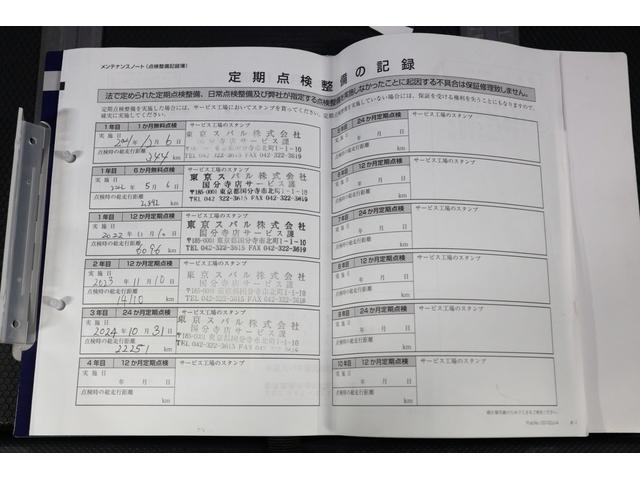 メンテナンスノート(点検整備記録簿)
定期点検整備の記録
法で定められた定期点検整備、日常点検整備及び弊社が指定する点検整備を実施しなかったことに起因する不具合は保証修理致しません。
定期点検整備を実施した場合には、サービス工場においてスタンプを貰ってください。
確実に実施してください。
実施していない場合には、保証を受ける権利を失うことにもなりますので、
1年目 1か月無料点検 サービス工場のスタンプ
実施日
年 12月 6日
点検時の総走行距離
344 km
東京スバル株式会社
国分寺店サービス課
〒185-0001 東京都国分寺市北町1-1-10
TEL 042-322-3615 FAX 042-322-3619
1年目 6か月無料点検 サービス工場のスタンプ
実施日
年 5月 6日
点検時の総走行距離
km
東京スバル株式会社
国分寺店サービス課
〒185-0001 東京都国分寺市北町1-1-10
TEL 042-322-3615 FAX 042-322-3619
1年目 12か月定期点検 サービス工場のスタンプ
実施日
2022年 11月 10日
点検時の総走行距離
6096 km
東京スバル株式会社
国分寺店サービス課
〒185-0001 東京都国分寺市北町1-1-10
TEL 042-322-3615 FAX 042-322-3619
2年目 12か月定期点検 サービス工場のスタンプ
実施日
2023年 11月 10日
点検時の総走行距離
14110 km
東京スバル株式会社
国分寺店サービス課
〒185-0001 東京都国分寺市北町1-1-10
TEL 042-322-3615 FAX 042-322-3619
3年目 24か月定期点検 サービス工場のスタンプ
実施日
2024年 10月 31日
点検時の総走行距離
22251 km
東京スバル株式会社
国分寺店サービス課
〒185-0001 東京都国分寺市北町1-1-10
TEL 042-322-3615 FAX 042-322-3619
4年目 12か月定期点検 サービス工場のスタンプ
実施日
年 月 日
点検時の総走行距離
km
5年目 24か月定期点検 サービス工場のスタンプ
実施日
年 月 日
点検時の総走行距離
km
6年目 12か月定期点検 サービス工場のスタンプ
実施日
年 月 日
点検時の総走行距離
km
7年目 24か月定期点検 サービス工場のスタンプ
実施日
年 月 日
点検時の総走行距離
km
8年目 12か月定期点検 サービス工場のスタンプ
実施日
年 月 日
点検時の総走行距離
km
9年目 24か月定期点検 サービス工場のスタンプ
実施日
年 月 日
点検時の総走行距離
km
10年目 12か月定期点検 サービス工場のスタンプ
実施日
年 月 日
点検時の総走行距離
km